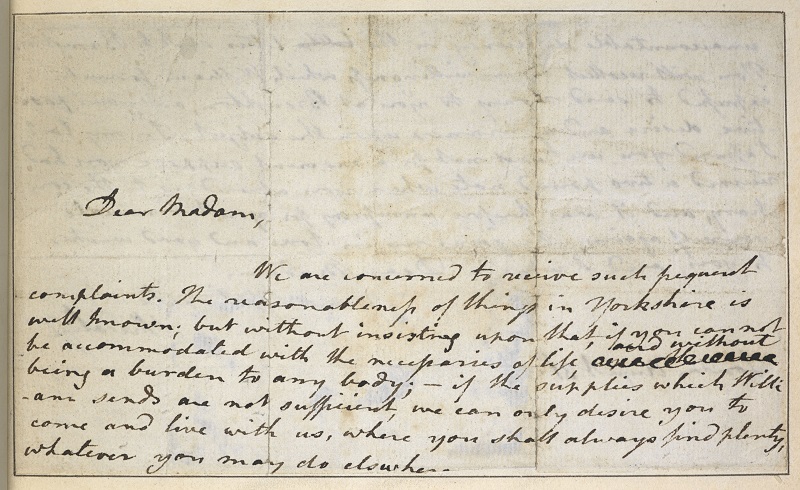 Dear Madam,
We are concerned to receive such frequent
complaints. The reasonableness of things in Yorkshire is
well known; but without insisting upon that if you cannot
be accommodated with the necessaries of life, and without
being a burden to any body; – if the supplies which Willi
-am sends are not sufficient, we can only desire you to
come and live with us, where you shall always find plenty,
whatever you may do elsewhere.